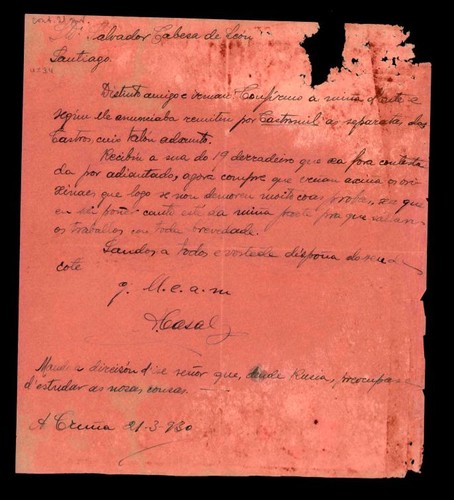 Salvador Cabesa de León
Santiago.
Distinto amigo e irmán: Confirmo a miña d'onte e
segun lle anunciaba remitin por Castromil as separatas dos
Castros, cuio talon adxunto.
Recibin a sua do 19 derradeiro que xa fora contesta
da por adiantado, agora compre que veñan axiña os ori
xinaes que logo se non demoren moito coas probas, xa que
en sei poñer canto este da miña parte pra que saian
os traballos con toda brevedade.
Saudos a todos e vostede dispoña do seu
cote
q. l. e. a. m
A Casal
Mande a direición d'ise señor que, desde Rusia, preocupase
d'estudar as nosas cousas. —
A Cruña 21-3-930